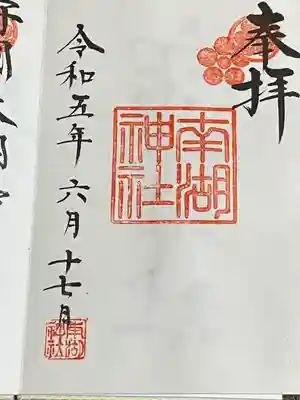 奉拝
南湖
神社
令和五年六月十七日
南湖
神社